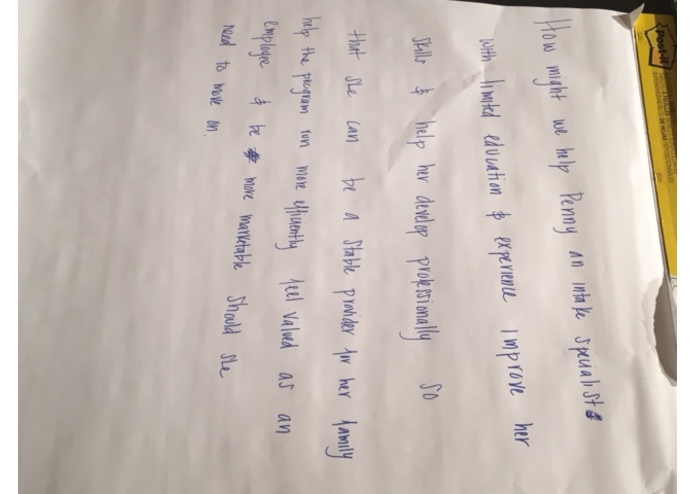 How might we help Penny an intake specialist
with limited education & experience improve her
skills & help her develop professionally so
that she can be a stable provider for her family
help the program run more efficiently feel valued as an
employee & be more marketable should she
need to move on.
Post-it